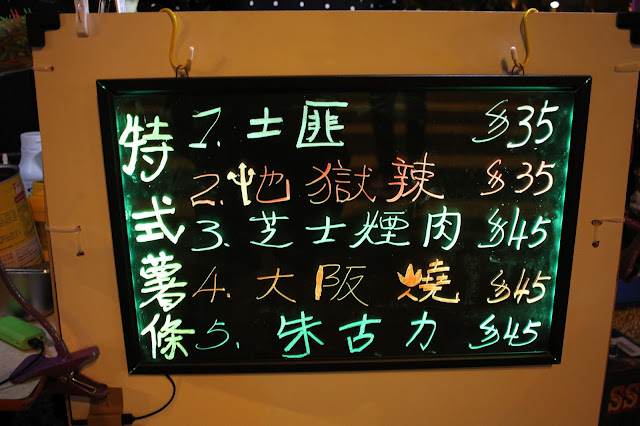 特式薯條
1. 土匪 $35
2. 地獄辣 $35
3. 芝士煙肉 $45
4. 大阪燒 $45
5. 朱古力 $45
SS